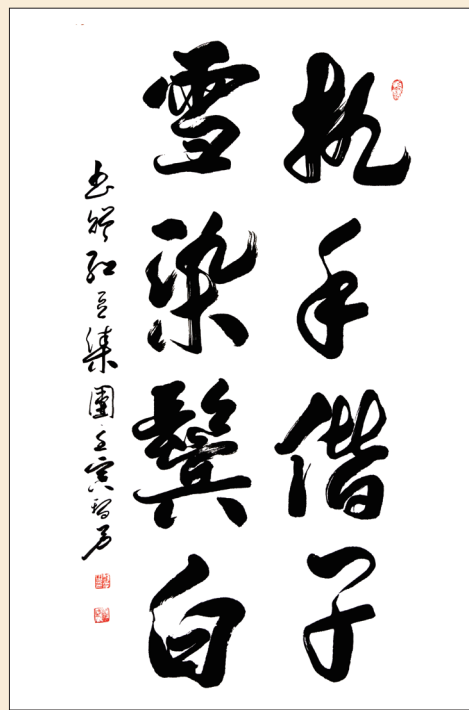 执手偕子
雪染鬓白
书赠红豆集团壬寅智勇